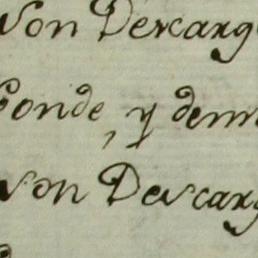 von Descarg
Conde, y dem
von Descarg